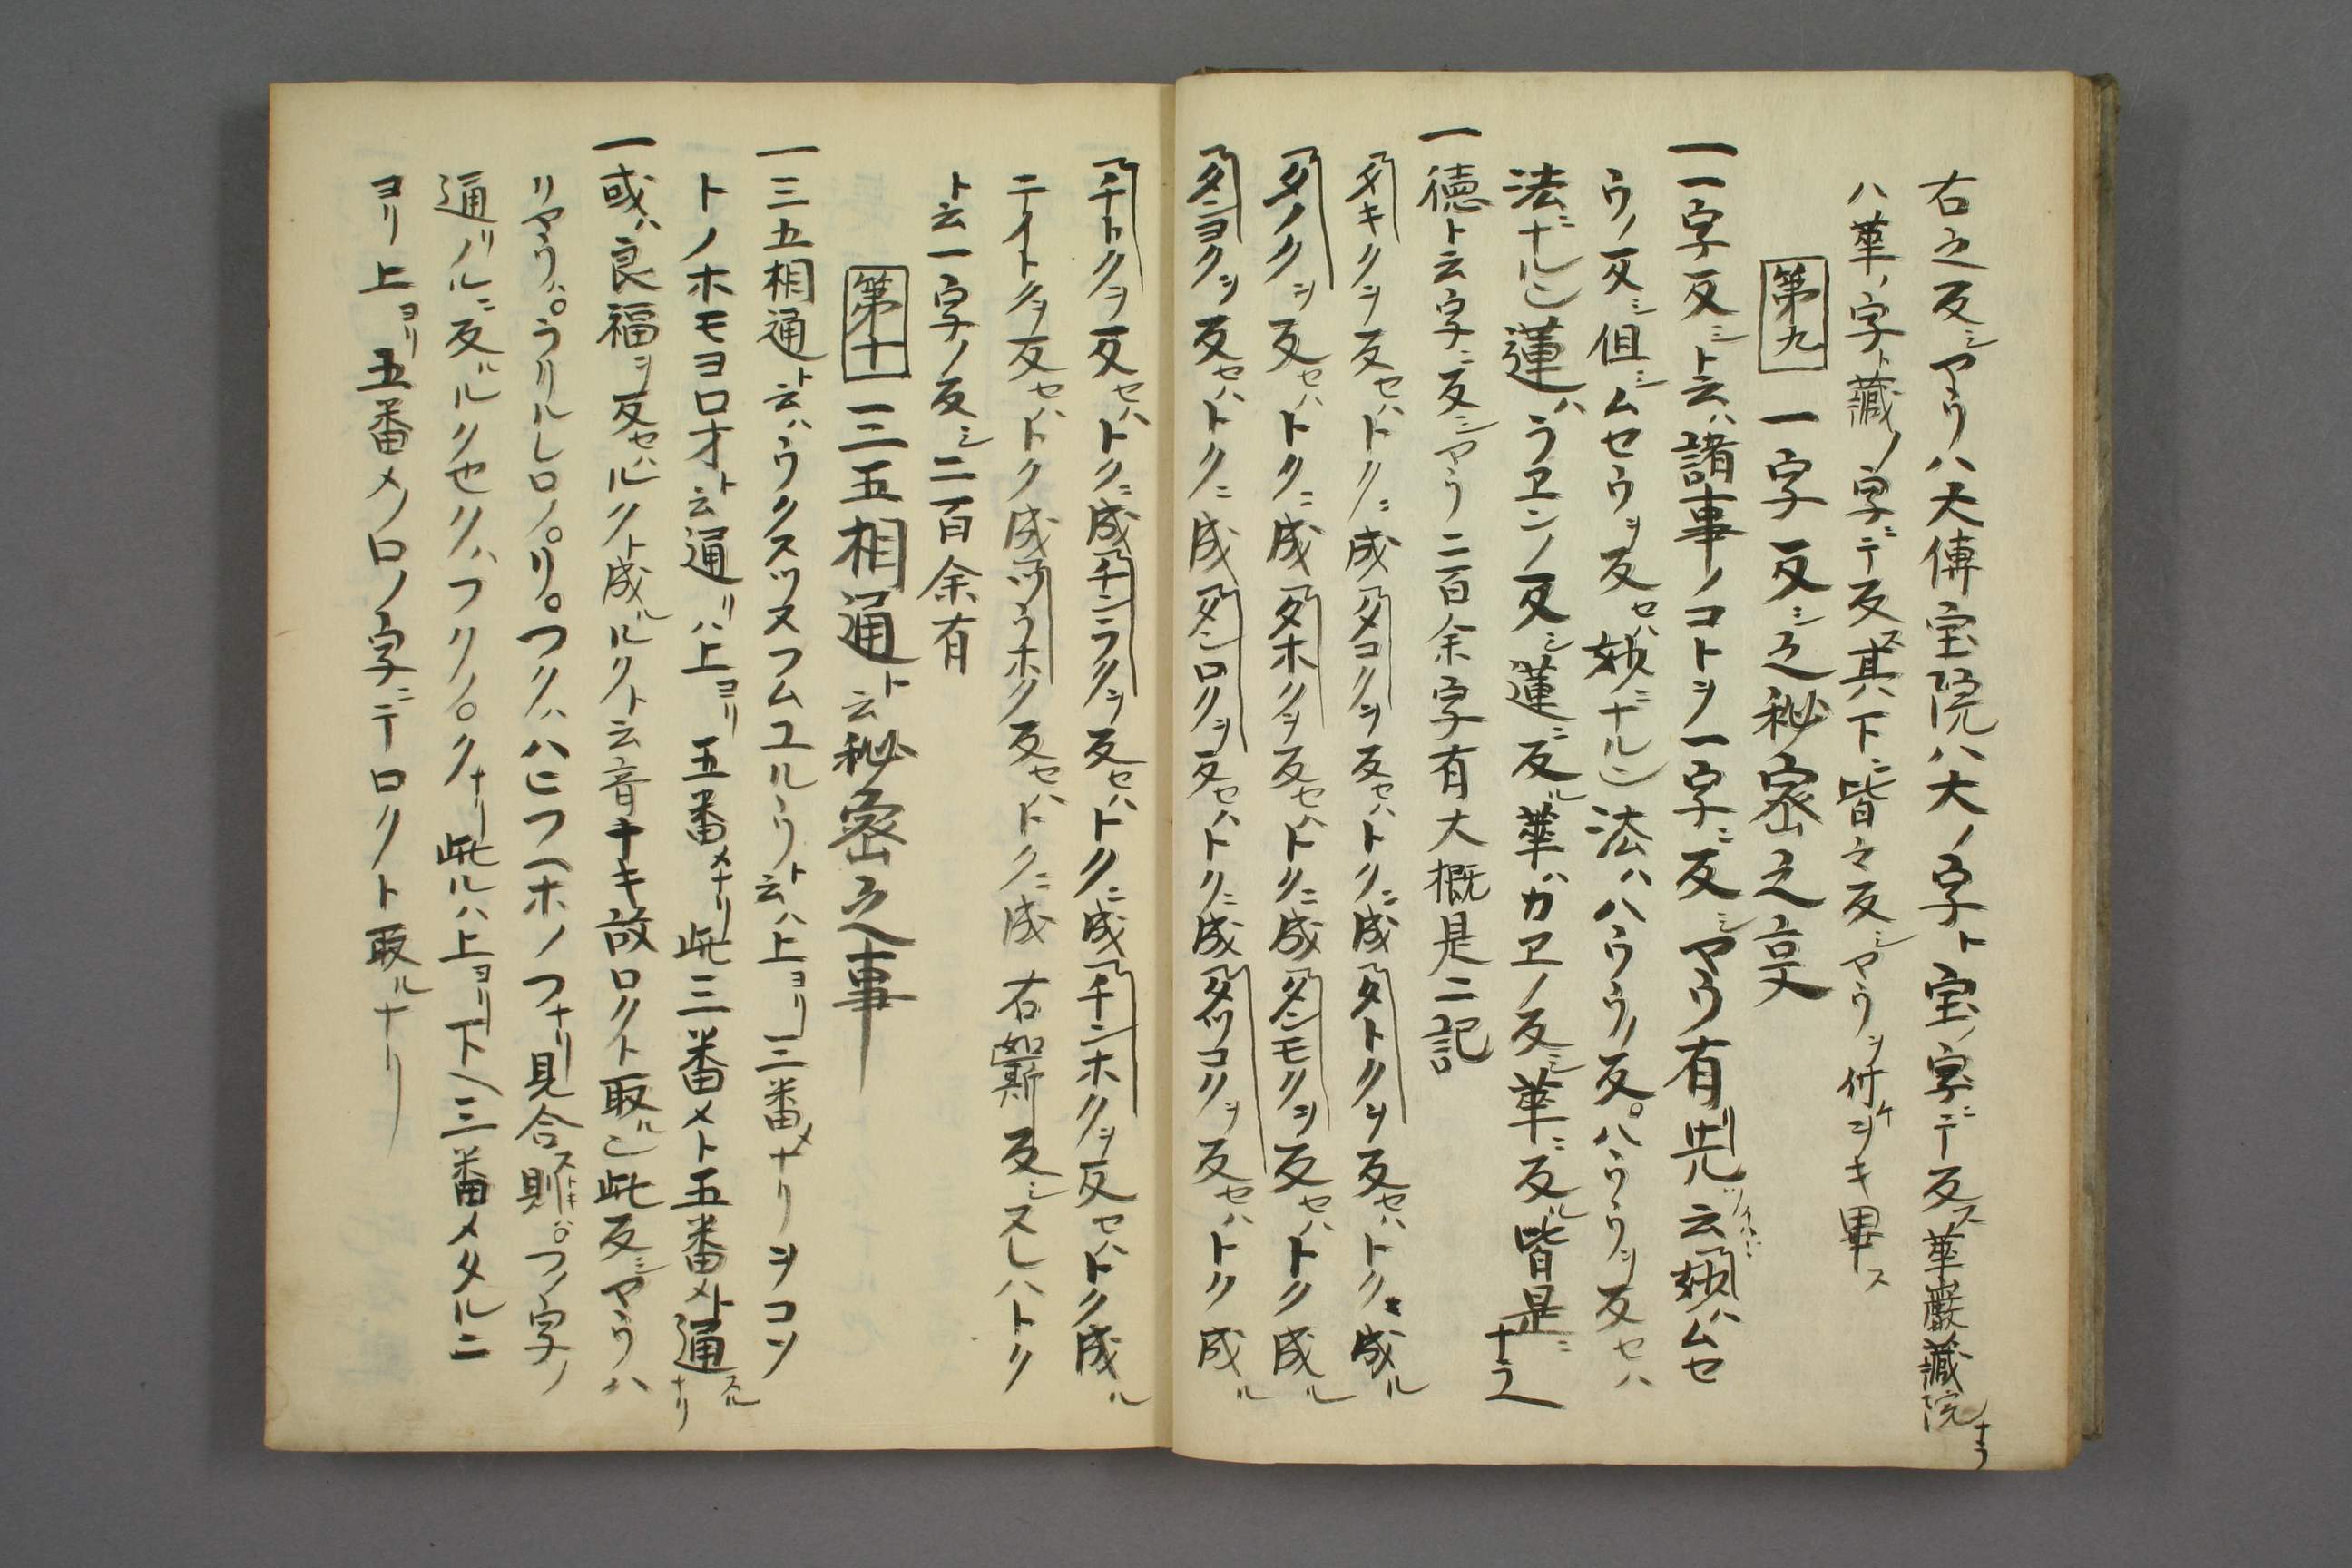 右之反シヤウハ大傳宝院ハ大ノ字ト宝ノ字ニテ反ス華嚴藏院ナラ
ハ華ノ字ト藏ノ字ニテ反ス其ハ下ニ皆之反シヤウヲ付ケヲキ畢ス
第九 一字反シ之秘密之叓
一一字反シト云ハ諸事ノコトヲ一字ニ反シヤウ有リ先ツ云ハヽ妙ハムセ
ウノ反シ但シムセウヲ反セハ妙ニナル也法ハハウウノ反。ハウウヲ反セハ
法ニナル也蓮ハラエンノ反シ蓮ニ反ル華ハカエノ反シ華ニ反ル皆是ニナラヘ
一徳ト云字ニ反シヤウ二百余字有大概是ニ記
乃タキクヲ反セハトクニ成乃タコクヲ反セハトクニ成乃タトクヲ反セハトクニ成ル
乃タノクヲ反セハトクニ成乃タホクヲ反セハトクニ成乃タンモクヲ反セハトク成ル
乃タンヨクヲ反セハトクニ成乃タンロクヲ反セハトクニ成乃タツコクヲ反セハトク成ル
乃チトクヲ反セハトクニ成乃チンラクヲ反セハトクニ成乃チンホクヲ反セハトク成ル
テイトクヲ反セハトク成乃ツウホク反セハトクニ成 右如斯反シスレハトク
ト云一字ノ反シ二百余有
第十 一三五相通ト云秘密之事
一三五相通ト云ハウクスツヌフムユルウト云ハ上ヨリ三番メナリヲコソ
トノホモヨロオト云通リハ上ヨリ五番メナリ此三番メト五番メト通スルナリ
一或ハ良福ヲ反セハルクト成ルルクト云音ナキ故ロクト取ル也此反シヤウハ
リヤウハ。ラリルレロノ。リ。フクハハヒフヘホノフナリ見合ス則トキハ。フノ字ノ
通リノルニ反ルルクセクハフクノ。クナリ此ルハ上ヨリ下ヘ三番メタルニ
ヨリ上ヨリ五番メノロノ字ニテロクト取ルナリ